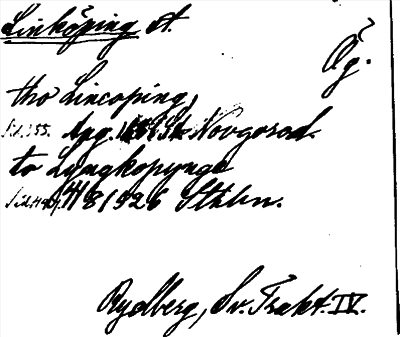 Linköping st.
Ög.
tho Lincoping,
Sid. 155. Apg. St. Novgorod.
to Lyngkopynge
4/8 1526 Sthlm.
Rydberg, Sv. Trakt. IV.